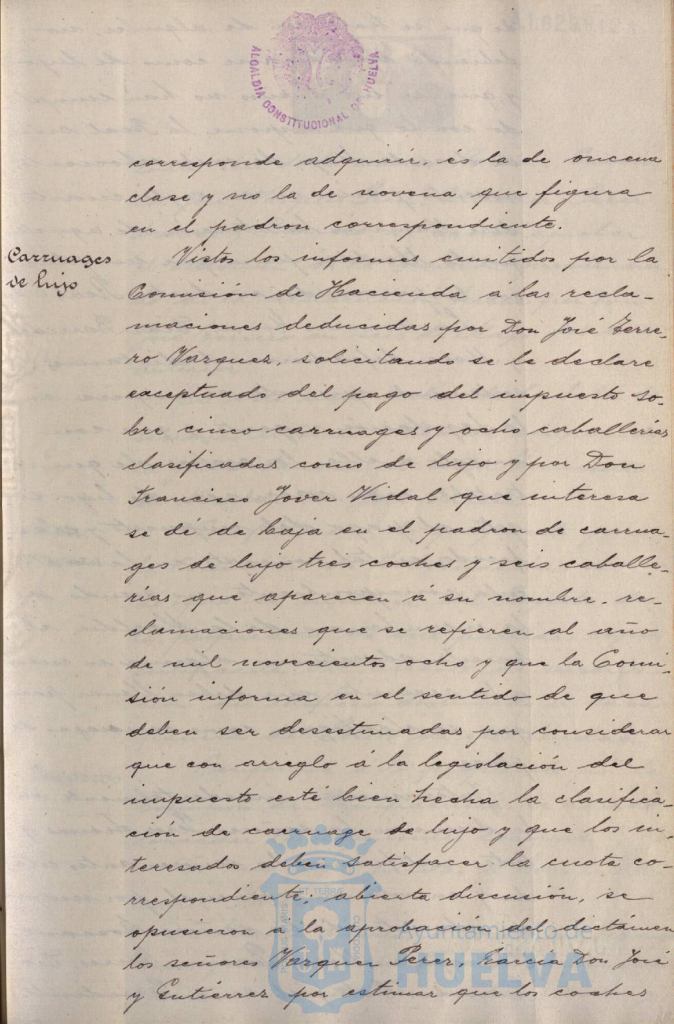 ALCALDIA CONSTITUCIONAL DE HUELVA
corresponde adquirir, és la de oncena
clase y no la de novena que figura
en el padron correspondiente.
Carruages
de lujo
Vistos los informes emitidos por la
Comisión de Hacienda á las recla-
maciones deducidas por Don José Ferre-
ro Vazquez, solicitando se le declare
exceptuado del pago del impuesto so-
bre cinco carruages y ocho caballerias
clasificadas como de lujo y por Don
Francisco Jover Vidal que interesa
se dé de baja en el padron de carrua-
ges de lujo tres coches y seis caballe-
rias que aparecen á su nombre, re-
clamaciones que se refieren al año
de mil novecientos ocho y que la Comi-
sión informa en el sentido de que
deben ser desestimadas por considerar
que con arreglo á la legislación del
impuesto esté bien hecha la clasifica-
ción de carruage de lujo y que los in-
teresados deben satisfacer la cuota co-
rrespondiente; abierta discusión, se
opusieron á la aprobación del dictámen
los señores Vazquez Perez, Garcia Don José
y Gutiérrez por estimar que los coches
Ayuntamiento de
HUELVA